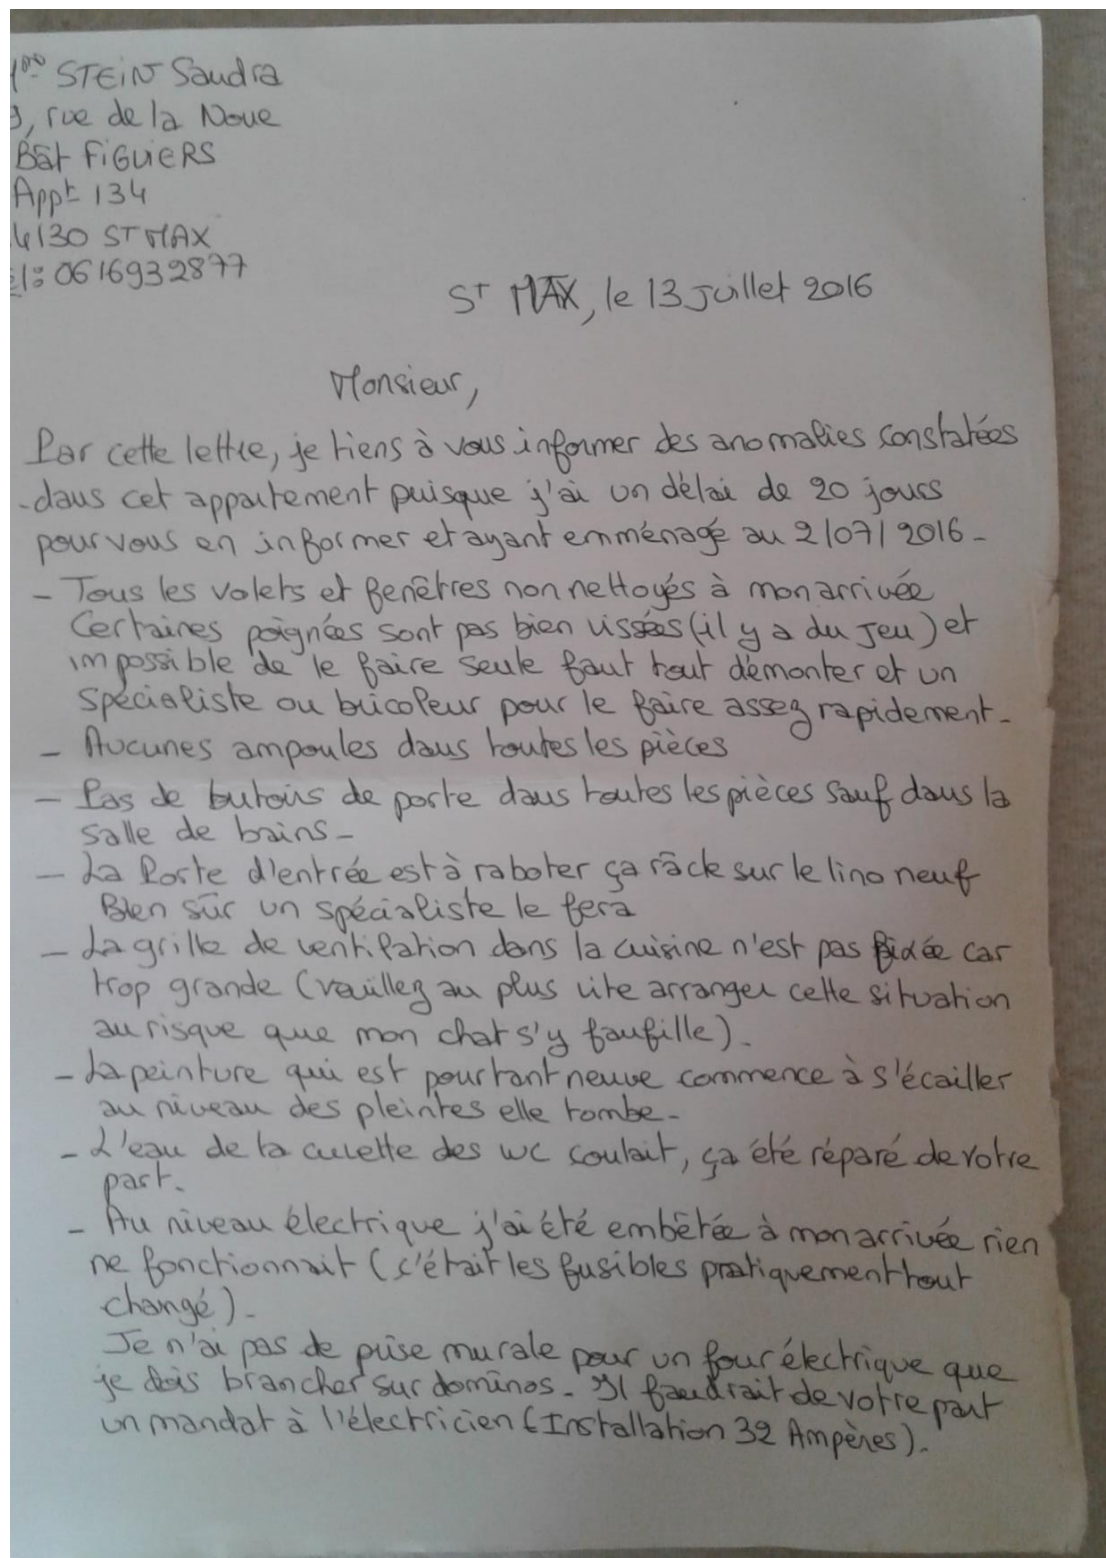 STEIN Sandra
, rue de la Noue
Bât FiGUiERS
Appt 134
4130 ST MAX
él: 0616932877
ST MAX, le 13 Juillet 2016
Monsieur,
Par cette lettre, je tiens à vous informer des anomalies constatées
dans cet appartement puisque j'ai un délai de 20 jours
pour vous en informer et ayant emménagé au 2/07/2016-
- Tous les volets et fenêtres non nettoyés à mon arrivée
Certaines poignées sont pas bien vissées (il y a du jeu) et
impossible de le faire seule faut tout démonter et un
spécialiste ou bricoleur pour le faire assez rapidement-
- Aucunes ampoules dans toutes les pièces
- Pas de butoirs de porte dans toutes les pièces sauf dans la
salle de bains-
- La Porte d'entrée est à raboter ça râck sur le lino neuf
Bien sûr un spécialiste le fera
- La grille de ventilation dans la cuisine n'est pas fixée car
trop grande (veuillez au plus vite arranger cette situation
au risque que mon chat s'y faufille).
- La peinture qui est pourtant neuve commence à s'écailler
au niveau des pleintes elle tombe-
- L'eau de la cuvette des WC coulait, ça été réparé de votre
part.
- Au niveau électrique j'ai été embêtée à mon arrivée rien
ne fonctionnait (c'était les fusibles pratiquement tout
changé)-
Je n'ai pas de prise murale pour un four électrique que
je dois brancher sur dominos- Il faudrait de votre part
un mandat à l'électricien (Installation 32 Ampères)-